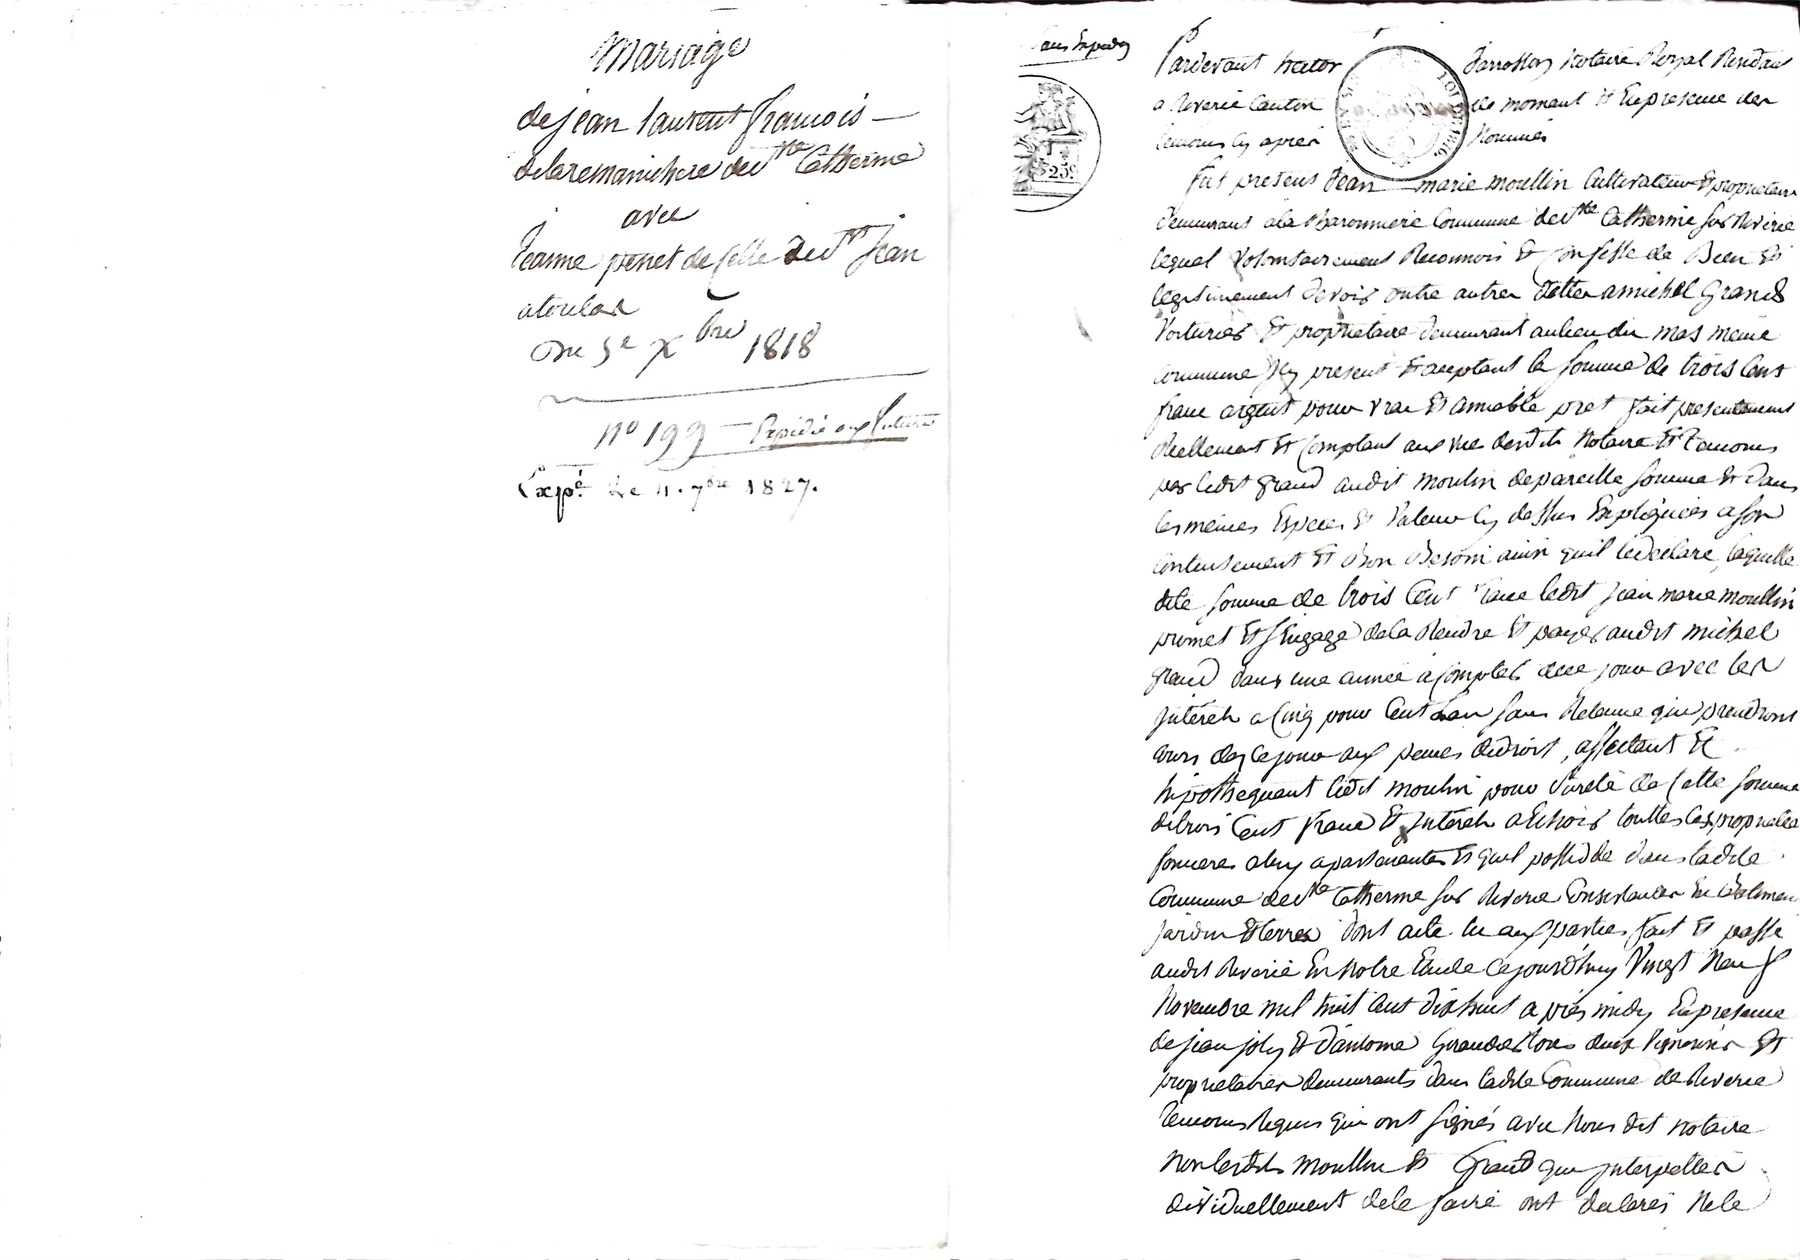 Mariage
de jean laurent françois
de ste Catherine
avec
jeanne penet de celle de st jean
atoulas
Du 5e Xbre 1818
no 199 Expédié aux futurs
Expé. Le 11. 7bre 1827.
sans Expedon
25c
Pardevant hector Notaire Royal Residant
a Riverie Canton de mornant Et En presence des
temoins cy après Nommés
fut present Jean marie moullin Cultivateur Et proprietaire
demeurant a la Baronnierie Commune de ste Catherine sur Riverie
lequel volontairement Reconnois Et Confesse de Bien Et
legitimement devoir outre autres dettes a michel Grand
Voiturier Et proprietaire demeurant au lieu du mas meme
commune icy present Et aceptant la somme de trois Cent
franc argent pour vrai Et amiable pret fait presentement
Reellement Et Comptant aux vue desdits Notaire Et Temoins
par ledit grand audit moulin de pareille somme Et dans
les mêmes Especes Et Valeur Cy dessus Expliquées a son
contentement Et Bon Besoin ainsi quil le declare, laquelle
dite somme de trois Cent franc ledit jean marie moullin
promet Et sEngage de la Rendre Et payer audit michel
grand dans une année a Compter de ce jour avec les
jntérets a Cinq pour Cent Lan sans Retenue qui prendront
cours des ce jour aux peines de droit, affectant Et
hipothequant ledit moulin pour sureté de Cette somme
de trois Cent franc Et jntérets a Echoir touttes les proprietés
foncieres a luy apartenantes Et quil possedde dans ladite
Commune de ste Catherine sur Riverie Consistantes En Batimens
jardin Et terres dont acte lu aux parties fait Et passé
audit Riverie En Notre Etude Cejourdhuy Vingt Neuf
Novembre mil huit Cent dix huit après midy En presence
de jean joly Et dantoine Girardet tous deux Vignerons Et
proprietaires demeurants dans ladite Commune de Riverie
temoins Requis qui ont signés avec Nous dit notaire
Non lesdits moullin Et Grand qui jnterpellés
dividuellement de le faire ont declarés Ne le